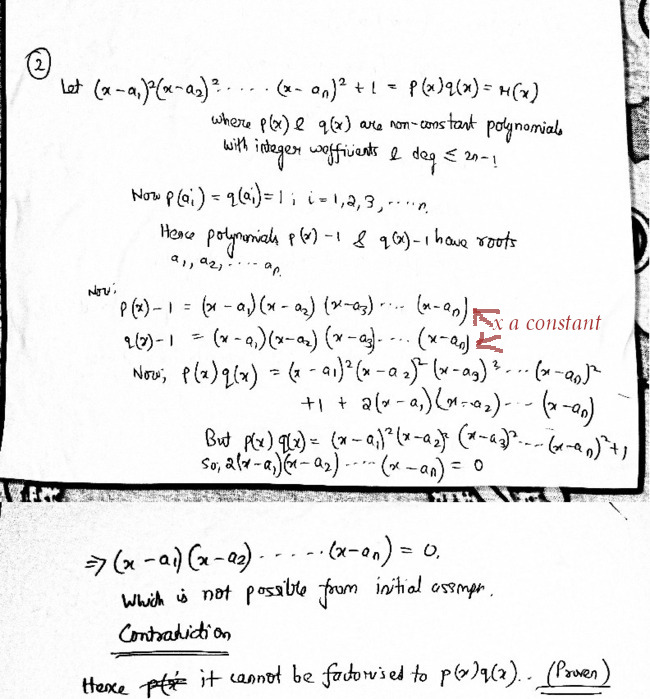 ②
Let (x-a₁)²(x-a₂)²..... (x-aₙ)² + 1 = p(x)q(x) = H(x)
where p(x) & q(x) are non-constant polynomials
with integer coefficients & deg ≤ 2n-1
Now p(aᵢ) = q(aᵢ) = 1 ; i = 1,2,3, ....n.
Hence polynomials p(x)-1 & q(x)-1 have roots
a₁, a₂, .... aₙ.
Now;
p(x)-1 = (x-a₁)(x-a₂) (x-a₃).... (x-aₙ)
x a constant
q(x)-1 = (x-a₁)(x-a₂) (x-a₃).... (x-aₙ)
Now; p(x)q(x) = (x-a₁)²(x-a₂)² (x-a₃)²... (x-aₙ)²
+1 + 2(x-a₁)(x-a₂)... (x-aₙ)
But p(x)q(x) = (x-a₁)²(x-a₂)² (x-a₃)².... (x-aₙ)²+1
So, 2(x-a₁)(x-a₂) ..... (x-aₙ) = 0
⇒ (x-a₁)(x-a₂)...... (x-aₙ) = 0.
which is not possible from initial assmpn.
Contradiction
Hence it cannot be factorised to p(x)q(x).. (Proven)